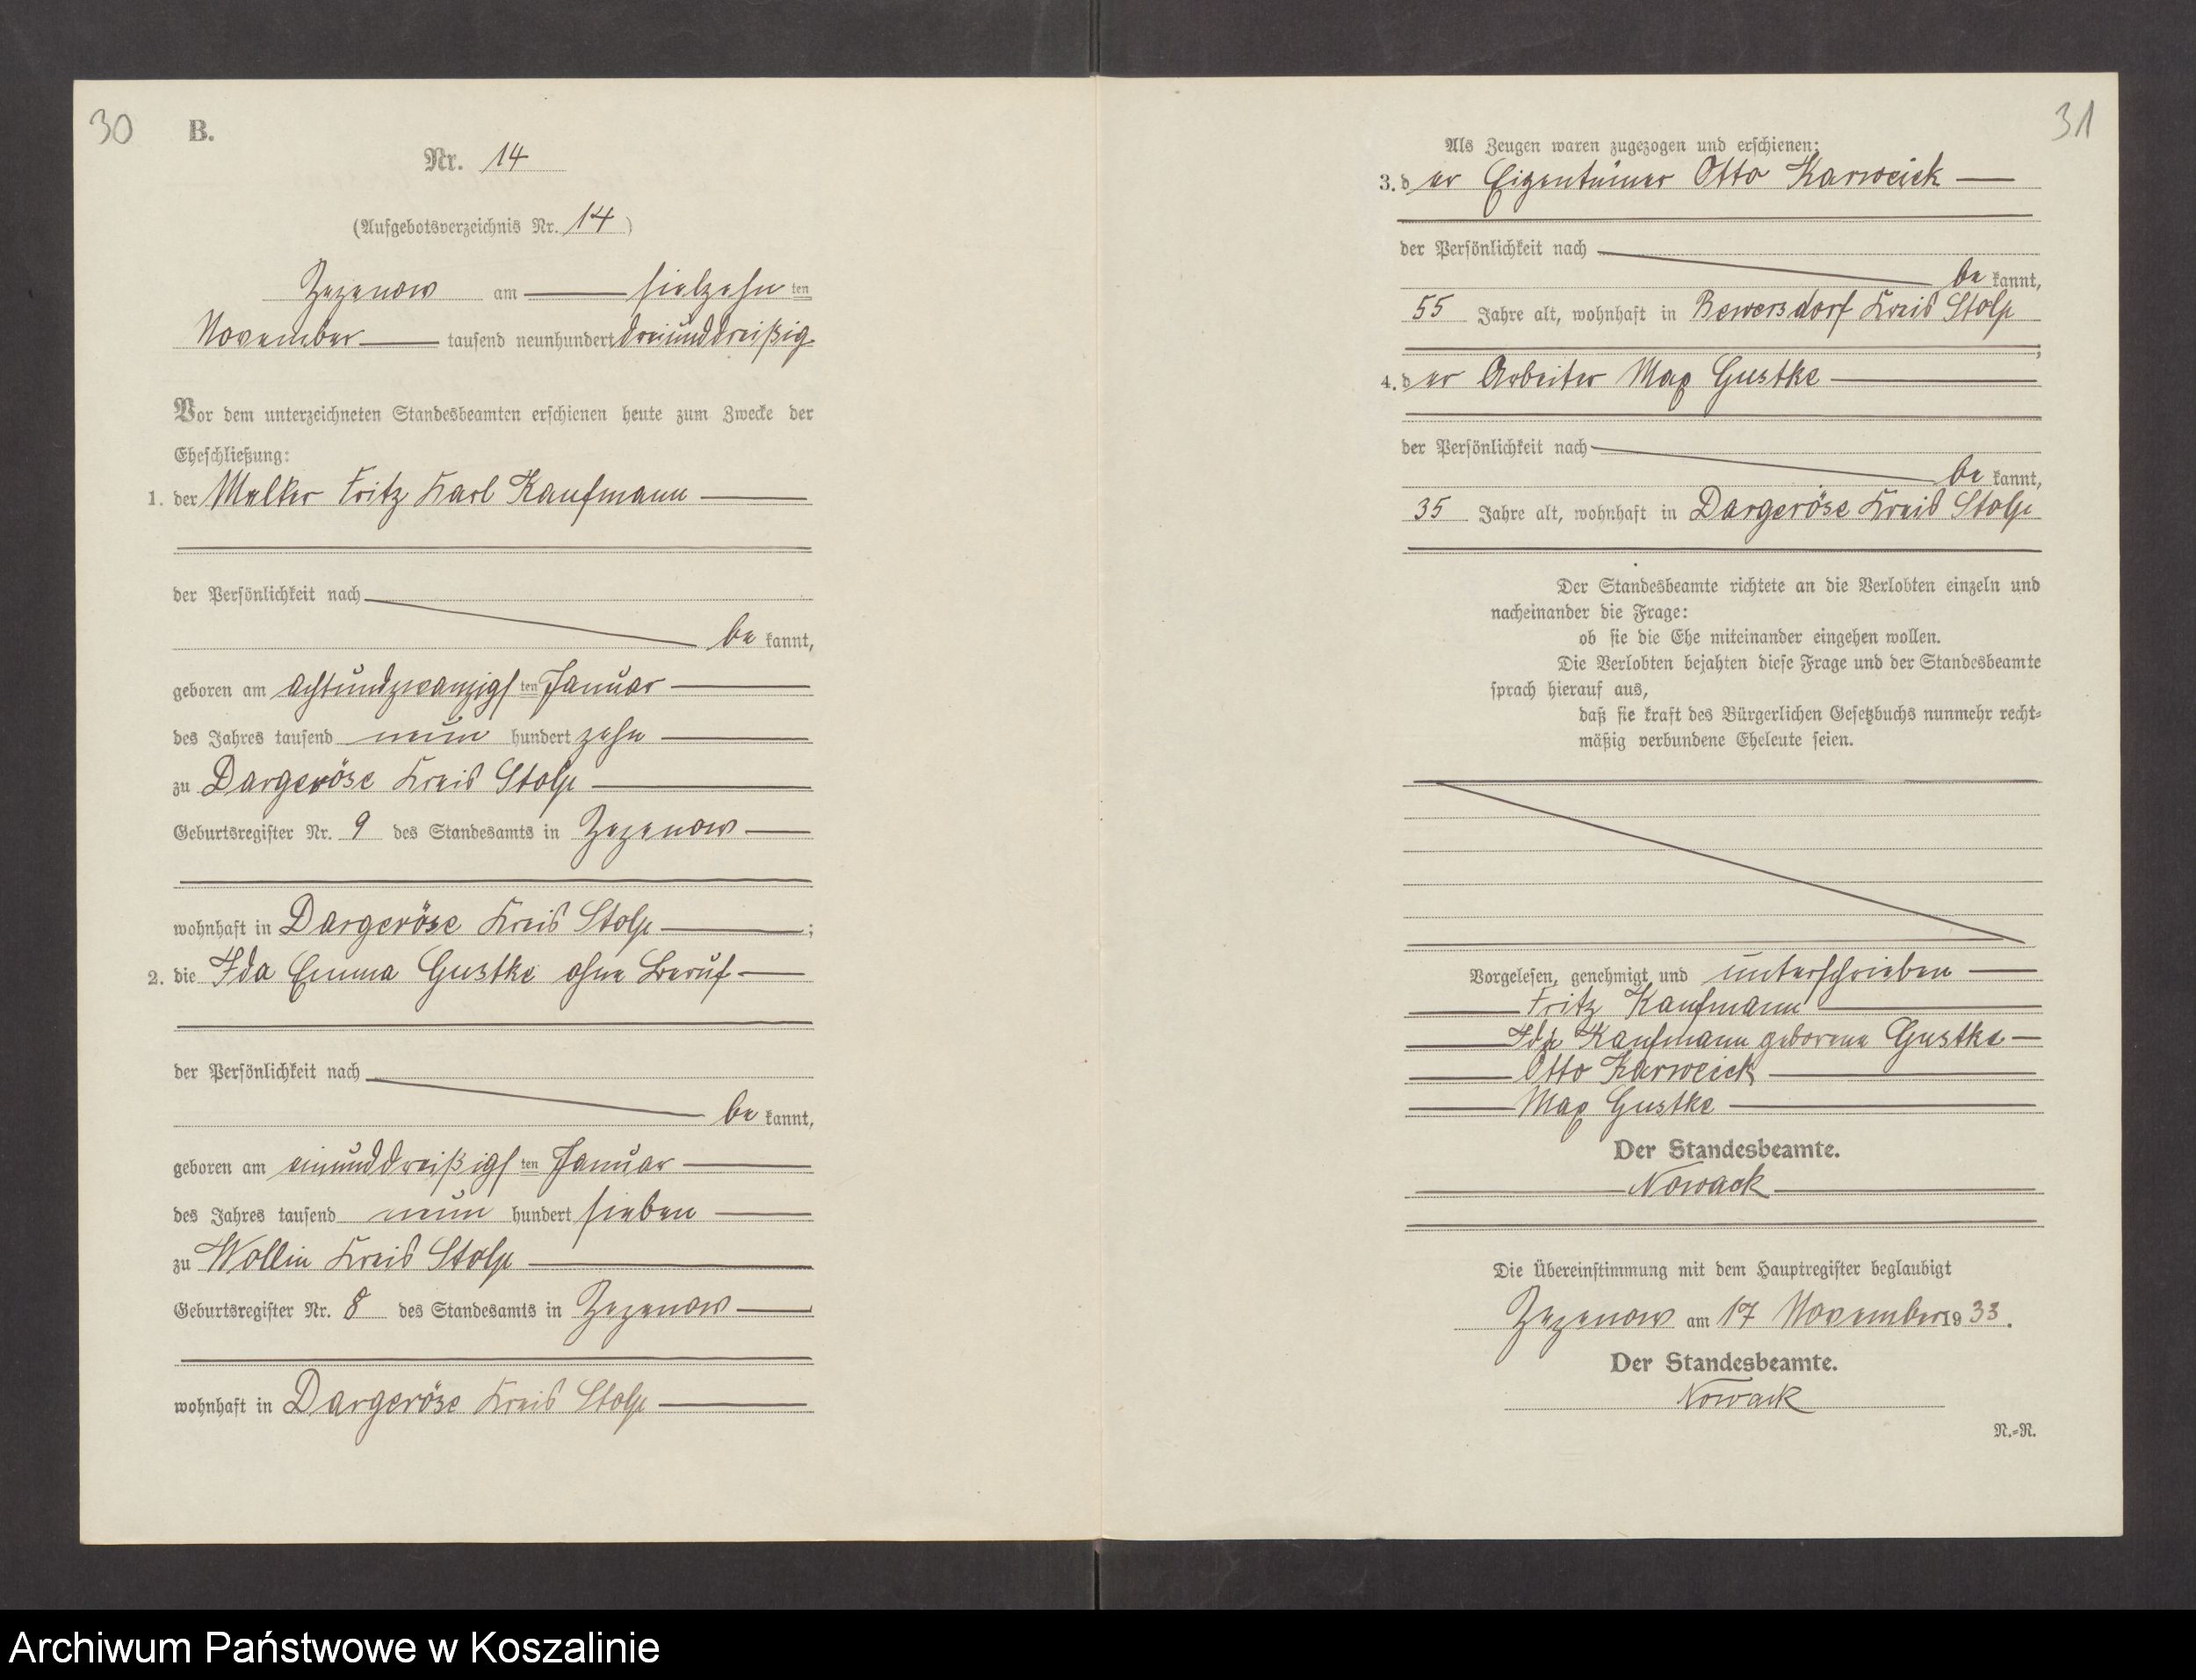 30
B.
Nr. 14
(Aufgebotsverzeichnis Nr. 14)
Zezenow am siebzehn ten
November tausend neunhundert dreiunddreißig
Vor dem unterzeichneten Standesbeamten erschienen heute zum Zwecke der
Eheschließung:
1. der Melker Fritz Karl Kaufmann
der Persönlichkeit nach
be kannt,
geboren am achtundzwanzigsten Januar
des Jahres tausend neun hundert zehn
zu Dargeröse Kreis Stolp
Geburtsregister Nr. 9 des Standesamts in Zezenow
wohnhaft in Dargeröse Kreis Stolp ;
2. die Ida Emma Gustke ohne Beruf
der Persönlichkeit nach
be kannt,
geboren am einunddreißigsten Januar
des Jahres tausend neun hundert sieben
zu Wollin Kreis Stolp
Geburtsregister Nr. 8 des Standesamts in Zezenow
wohnhaft in Dargeröse Kreis Stolp
31
Als Zeugen waren zugezogen und erschienen:
3. der Eigentümer Otto Karweick
der Persönlichkeit nach
be kannt,
55 Jahre alt, wohnhaft in Bewersdorf Kreis Stolp
;
4. der Arbeiter Max Gustke
der Persönlichkeit nach
be kannt,
35 Jahre alt, wohnhaft in Dargeröse Kreis Stolp
Der Standesbeamte richtete an die Verlobten einzeln und
nacheinander die Frage:
ob sie die Ehe miteinander eingehen wollen.
Die Verlobten bejahten diese Frage und der Standesbeamte
sprach hierauf aus,
daß sie kraft des Bürgerlichen Gesetzbuchs nunmehr recht-
mäßig verbundene Eheleute seien.
Vorgelesen, genehmigt und unterschrieben
Fritz Kaufmann
Ida Kaufmann geborene Gustke
Otto Karweick
Max Gustke
Der Standesbeamte.
Nowack
Die Übereinstimmung mit dem Hauptregister beglaubigt
Zezenow am 17 November 1933.
Der Standesbeamte.
Nowack
N.-R.
Archiwum Państwowe w Koszalinie